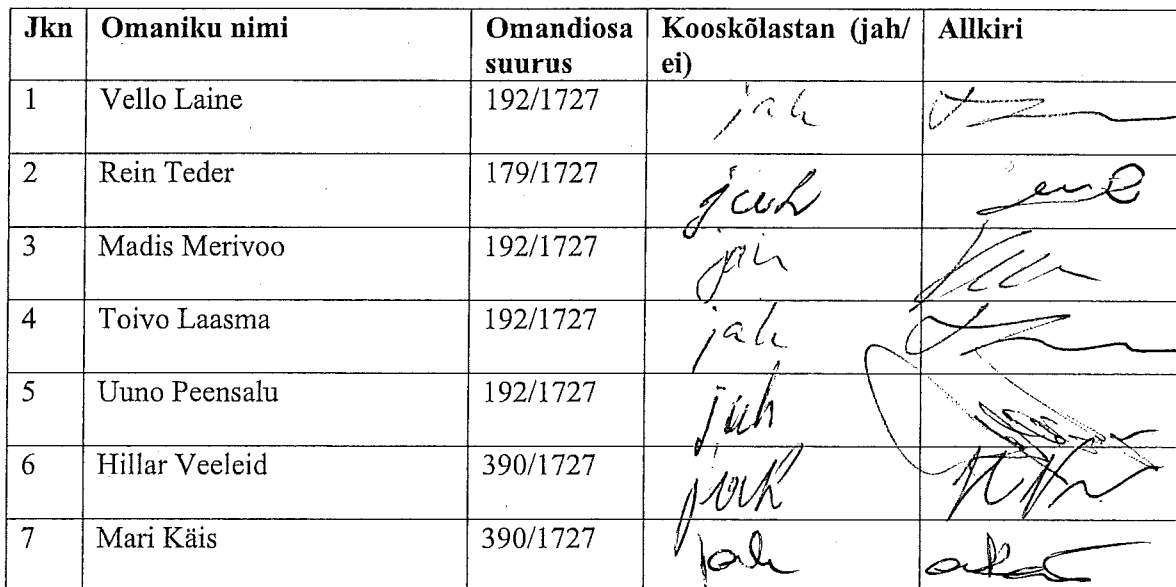 Jkn Omaniku nimi Omandiosa suurus Kooskõlastan (jah/ ei) Allkiri
1 Vello Laine 192/1727 jah
2 Rein Teder 179/1727 jah
3 Madis Merivoo 192/1727 jah
4 Toivo Laasma 192/1727 jah
5 Uuno Peensalu 192/1727 jah
6 Hillar Veeleid 390/1727 jah
7 Mari Käis 390/1727 jah